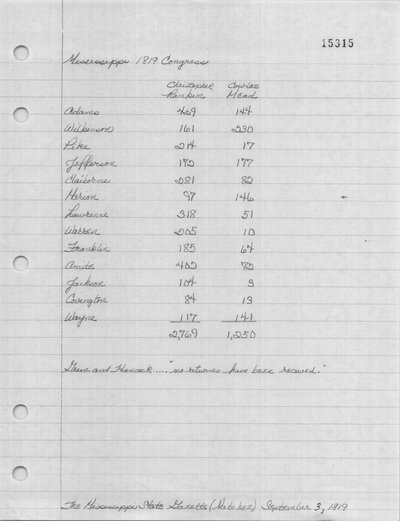 15315
Mississippi 1819 Congress
Christopher Cowles
Rankin Mead
Adams 469 144
Wilkinson 161 230
Pike 214 17
Jefferson 172 177
Claiborne 281 82
Marion 97 146
Lawrence 318 51
Warren 205 10
Franklin 185 64
Amite 402 72
Jackson 104 3
Covington 84 13
Wayne 117 141
2,769 1,250
Green and Hancock .... "no returns have been received."
The Mississippi State Gazette (Natchez) September 3, 1819